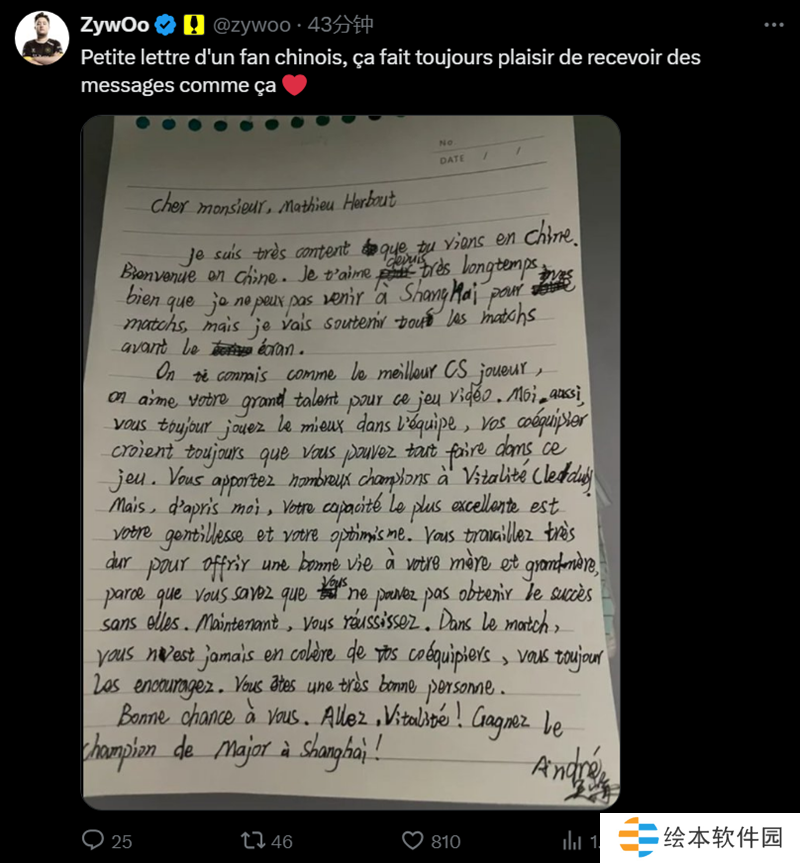 ZywOo @zywoo · 43分钟
Petite lettre d'un fan chinois, ça fait toujours plaisir de recevoir des
messages comme ça ❤️
No
DATE / /
Cher monsieur, Mathieu Herbout
Je suis très content que tu viens en Chine.
Bienvenue en Chine. Je t'aime depuis très longtemps,
bien que je ne peux pas venir à ShangHai pour
matchs, mais je vais soutenir tout les matchs
avant le écran.
On te connais comme le meilleur CS joueur,
on aime votre grand talent pour ce jeu vidéo. Moi aussi,
vous toujour jouez le mieux dans l'équipe, vos coéquipier
croient toujours que vous pouvez tout faire dans ce
jeu. Vous apportez nombreux champions à Vitalité (le club)
Mais, d'apris moi, votre capacité le plus excellente est
votre gentillesse et votre optimisme. Vous travaillez très
dur pour offrir une bonne vie à votre mère et grand-mère,
parce que vous savez que vous ne pouvez pas obtenir le succès
sans elles. Maintenant, vous réussissez. Dans le match,
vous n'est jamais en colère de vos coéquipiers, vous toujour
les encouragez. Vous êtes une très bonne personne.
Bonne chance à vous. Allez, Vitalité! Gagnez le
champion de Major à Shanghai!
André
25 46 810 1.
绘本软件园